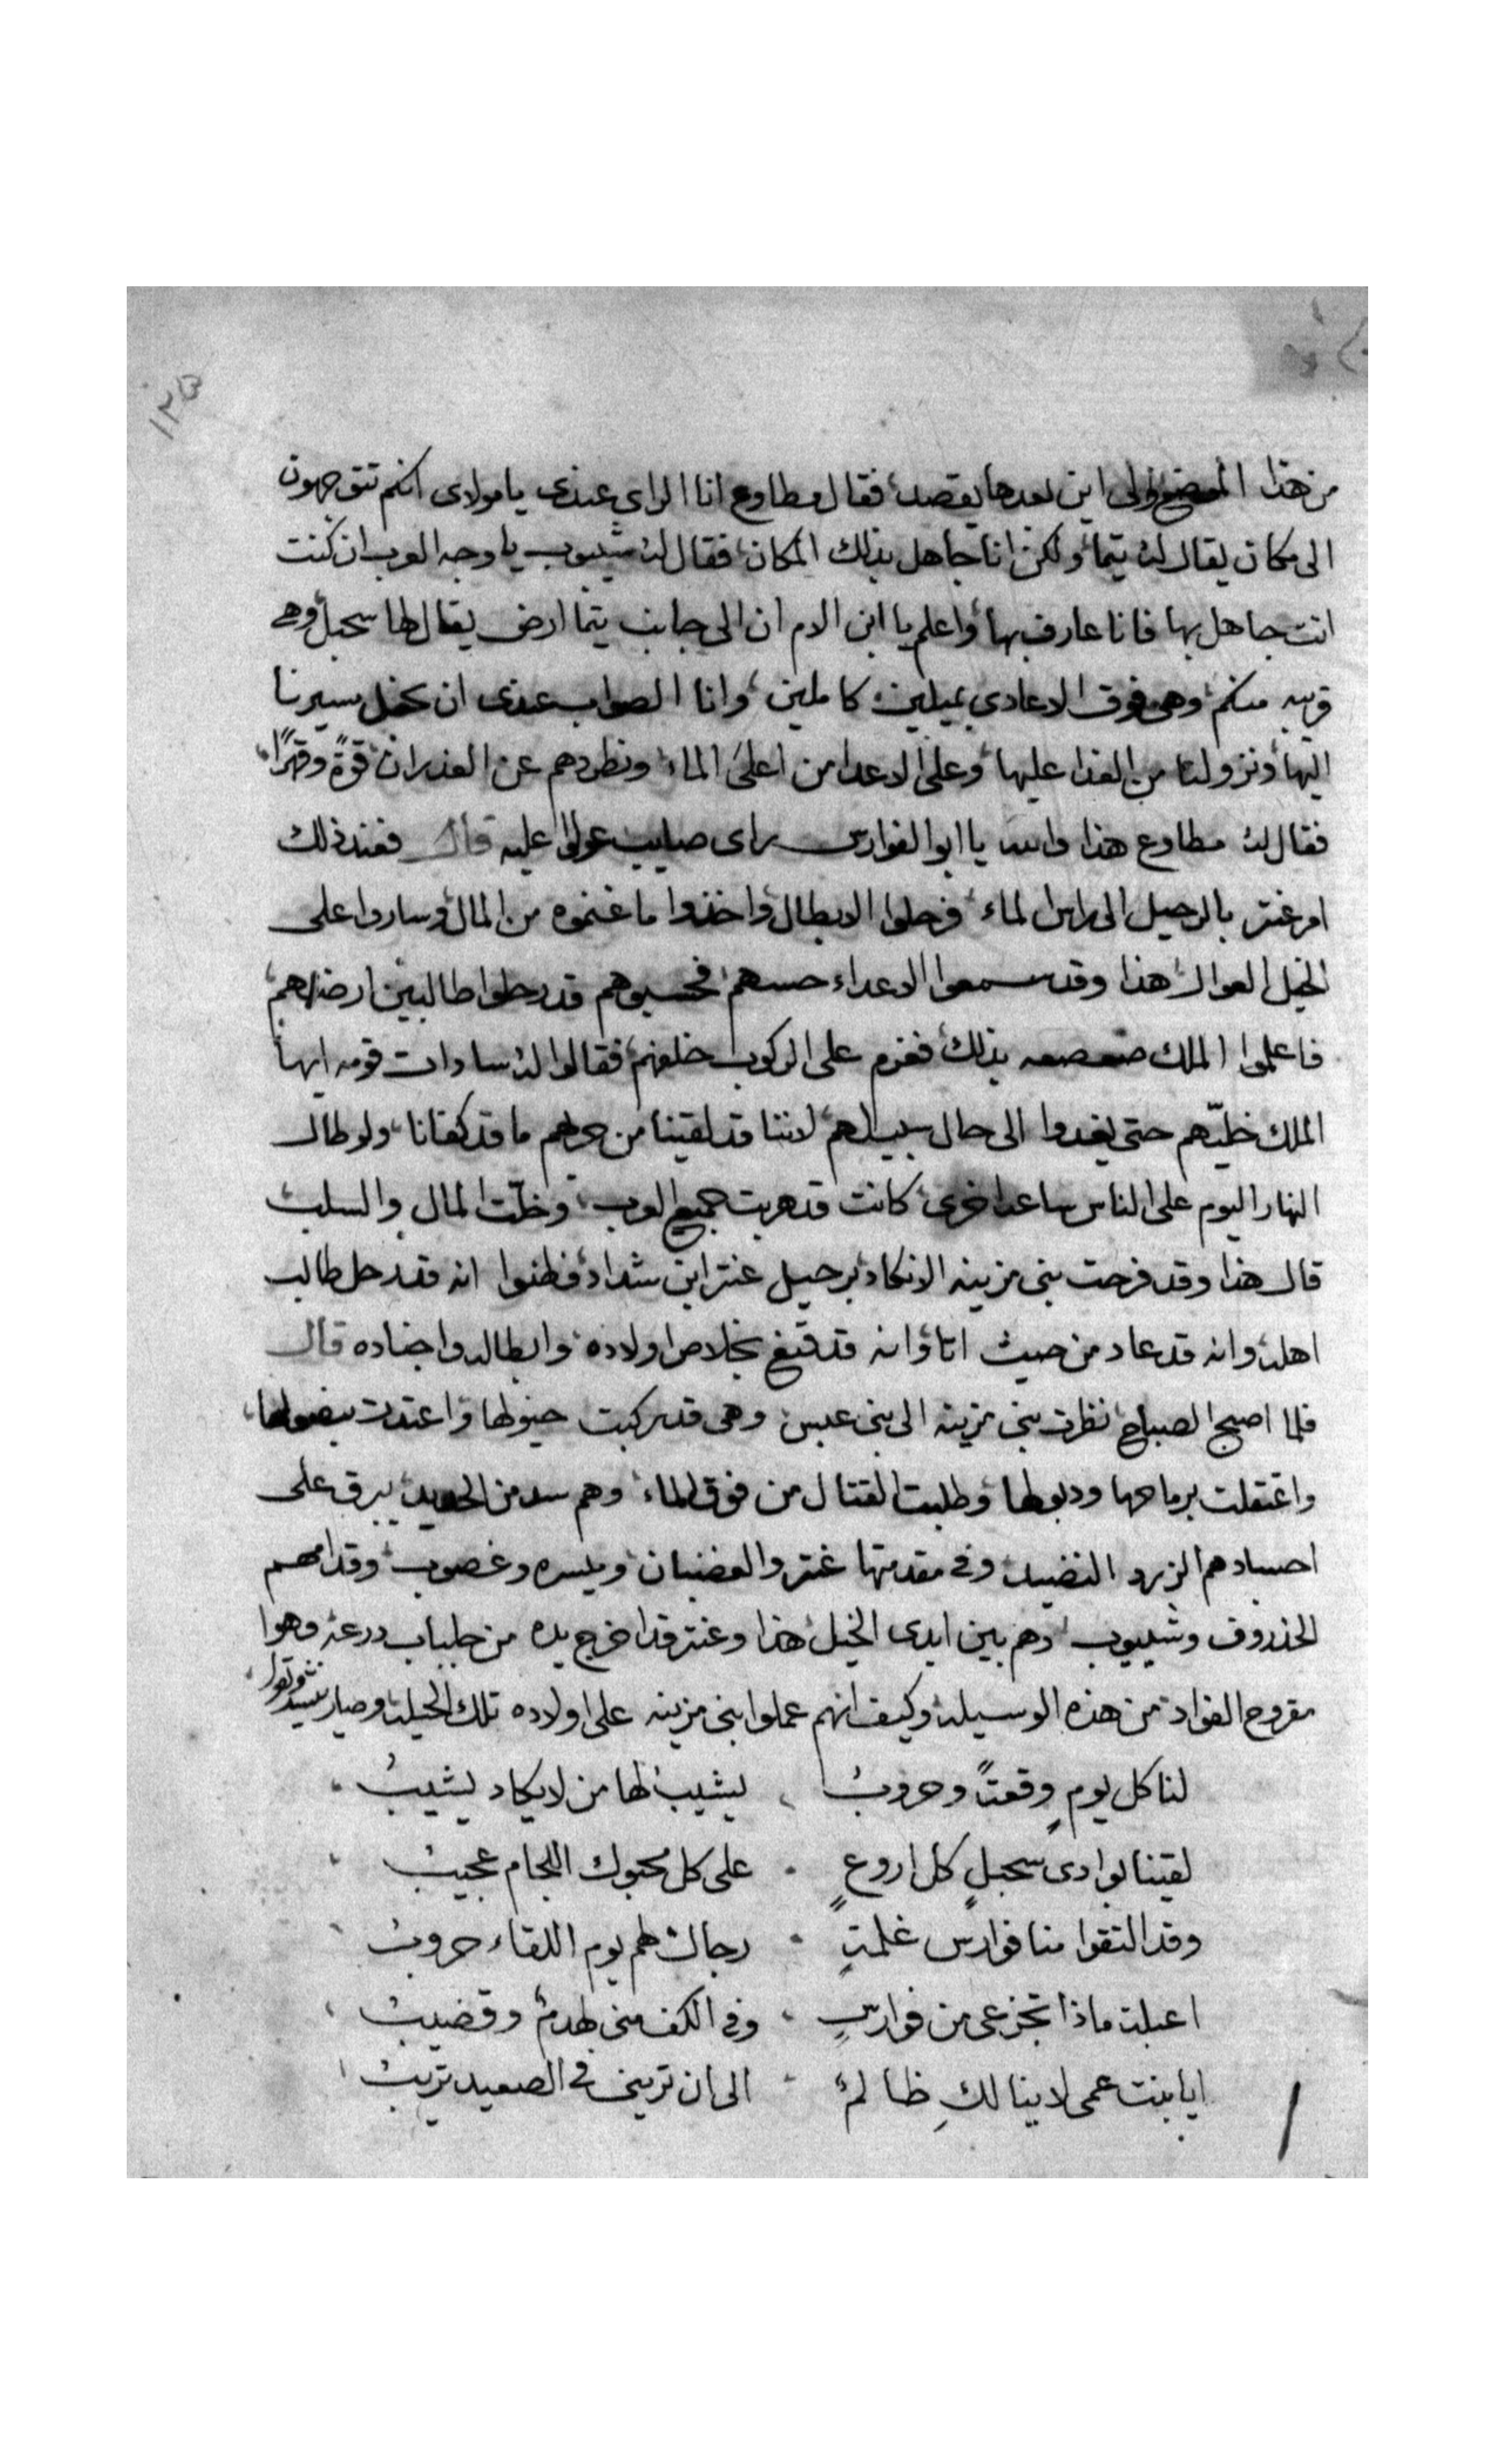 ١٢٥
من هذا الموضع والى اين بعدها يقصد فقال مطاوع انا الراى عندى يا مولاى انكم تتوجهون
الى مكان يقال له يتما ولكن انا جاهل بذلك المكان فقال له شيبوب يا وجه العرب ان كنت
انت جاهل بها فانا عارف بها واعلم يا ابن الام ان الى جانب يتما ارض يقال لها سحبل وهى
قريبه منكم وهى فوق الاعادى بميلين كاملين وانا الصواب عندى ان نجعل سيرنا
اليها ونزولنا من الغدا عليها وعلى الاعدا من اعلى الماء ونطردهم عن الغدران قوةً وقهرًا
فقال له مطاوع هذا والله يا ابو الفوارس راى صايب عولوا عليه قال فعند ذلك
امر عنتر بالرحيل الى راس الماء فرحلوا الابطال واخذوا ما غنموه من المال وساروا على
الخيل العوال هذا وقد سمعوا الاعداء حسهم فحسبوهم قد رحلوا طالبين ارضهم
فاعلموا الملك صعصعه بذلك فعزم على الركوب خلفهم فقالوا له سادات قومه ايها
الملك خليّهم حتى يغدوا الى حال سبيلهم لاننا قد لقينا من حربهم ما قد كفانا ولو طال
النهار اليوم على الناس ساعه اخرى كانت قد هربت جميع العرب وخلّت المال والسلب
قال هذا وقد فرحت بنى مزينه الانكاد برحيل عنتر ابن شداد فظنوا انه قد رحل طالب
اهله وانه قد عاد من حيث اتا وانه قد قنع بخلاص اولاده وابطاله واجناده قال
فلما اصبح الصباح نظرت بنى مزينه الى بنى عبس وهى قد ركبت خيولها واعتدت بنصولها
واعتقلت برماحها ودبولها وطلبت القتال من فوق الماء وهم سد من الحديد يبرق على
اجسادهم الزرد النضيد وفى مقدمتها عنتر والغضبان وميسره وغصوب وقدامهم
الخذروف وشيبوب وهم بين ايدى الخيل هذا وعنتر قد اخرج يده من جلباب درعه وهوا
مقروح الفواد من هذه الوسيله وكيف انهم عملوا بنى مزينه على اولاده تلك الحيله وصار ينشد ويقول
لنا كل يومٍ وقعتاً وحروبُ يشيب لها من لا يكاد يشيبُ
لقينا بوادى سحبلٍ كل اروعٍ على كل محبوك اللجام عجيبُ
وقد التقوا منا فوارس غلمتٍ رجالٌ لهم يوم اللقاء حروبُ
اعبلت ماذا تجزعى من فوارسٍ وفى الكف منى لهدمٌ وقضيبُ
ايا بنت عمى لا ينالكِ ظالمٌ الى ان ترينى فى الصعيد تريبُ